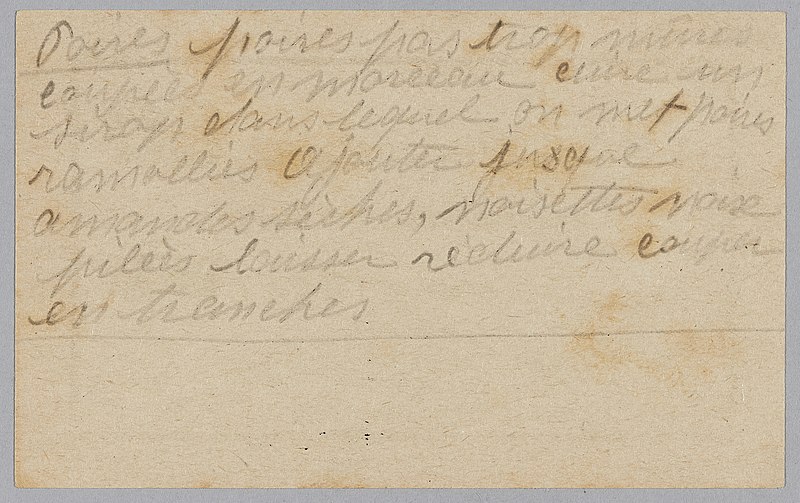 Poires poires pas trop mûres
coupées en morceau cuire un
sirop dans lequel on met poires
ramollies Ajouter jusque
amandes sèches, noisettes noix
pilées laisser réduire couper
en tranches